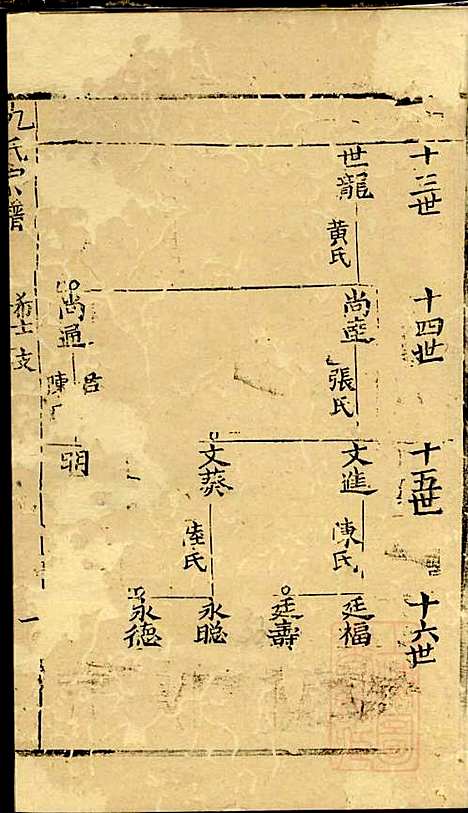 十三世
世龍
黄氏
十四世
尚
張氏
尚通
陳
呂
十五世
文進
陳氏
文葵
陸氏
明
十六世
廷福
廷壽
永聪
永德
氏宗譜
支
一